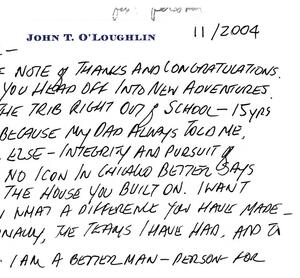 JOHN T. O'LOUGHLIN
11/2004
NOTE of THANKS AND CONGRATULATIONS.
YOU HEAD OFF INTO NEW ADVENTURES.
THE TRIB RIGHT OUT of SCHOOL - 15 yrs
BECAUSE MY DAD ALWAYS TOLD ME,
ELSE - INTEGRITY AND PURSUIT of
NO ICON IN CHICAGO BETTER SAYS
THE HOUSE YOU BUILT ON. I WANT
WHAT A DIFFERENCE YOU HAVE MADE -
THE TEAMS I HAVE HAD, AND TO
I AM A BETTER MAN - PERSON FOR